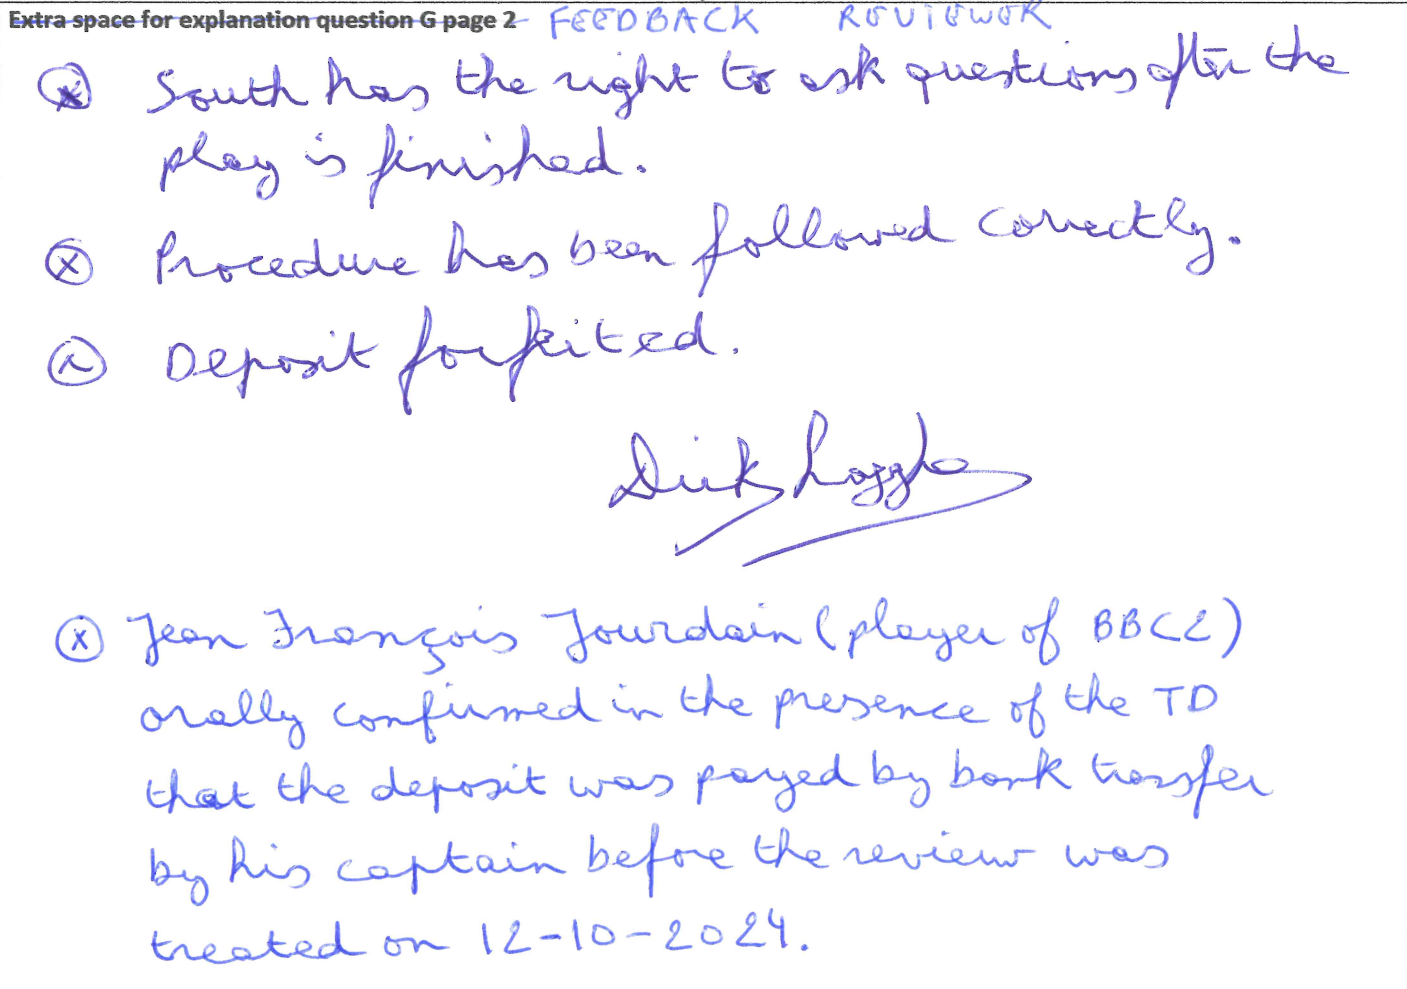 Extra space for explanation question G page 2 FEEDBACK REVIEWER
ⓧ South has the right to ask questions after the
play is finished.
ⓧ Procedure has been followed correctly.
Deposit forfeited.
Dirk
ⓧ Jean François Jourdain (player of BBC2)
orally confirmed in the presence of the TD
that the deposit was payed by bank transfer
by his captain before the review was
treated on 12-10-2024.